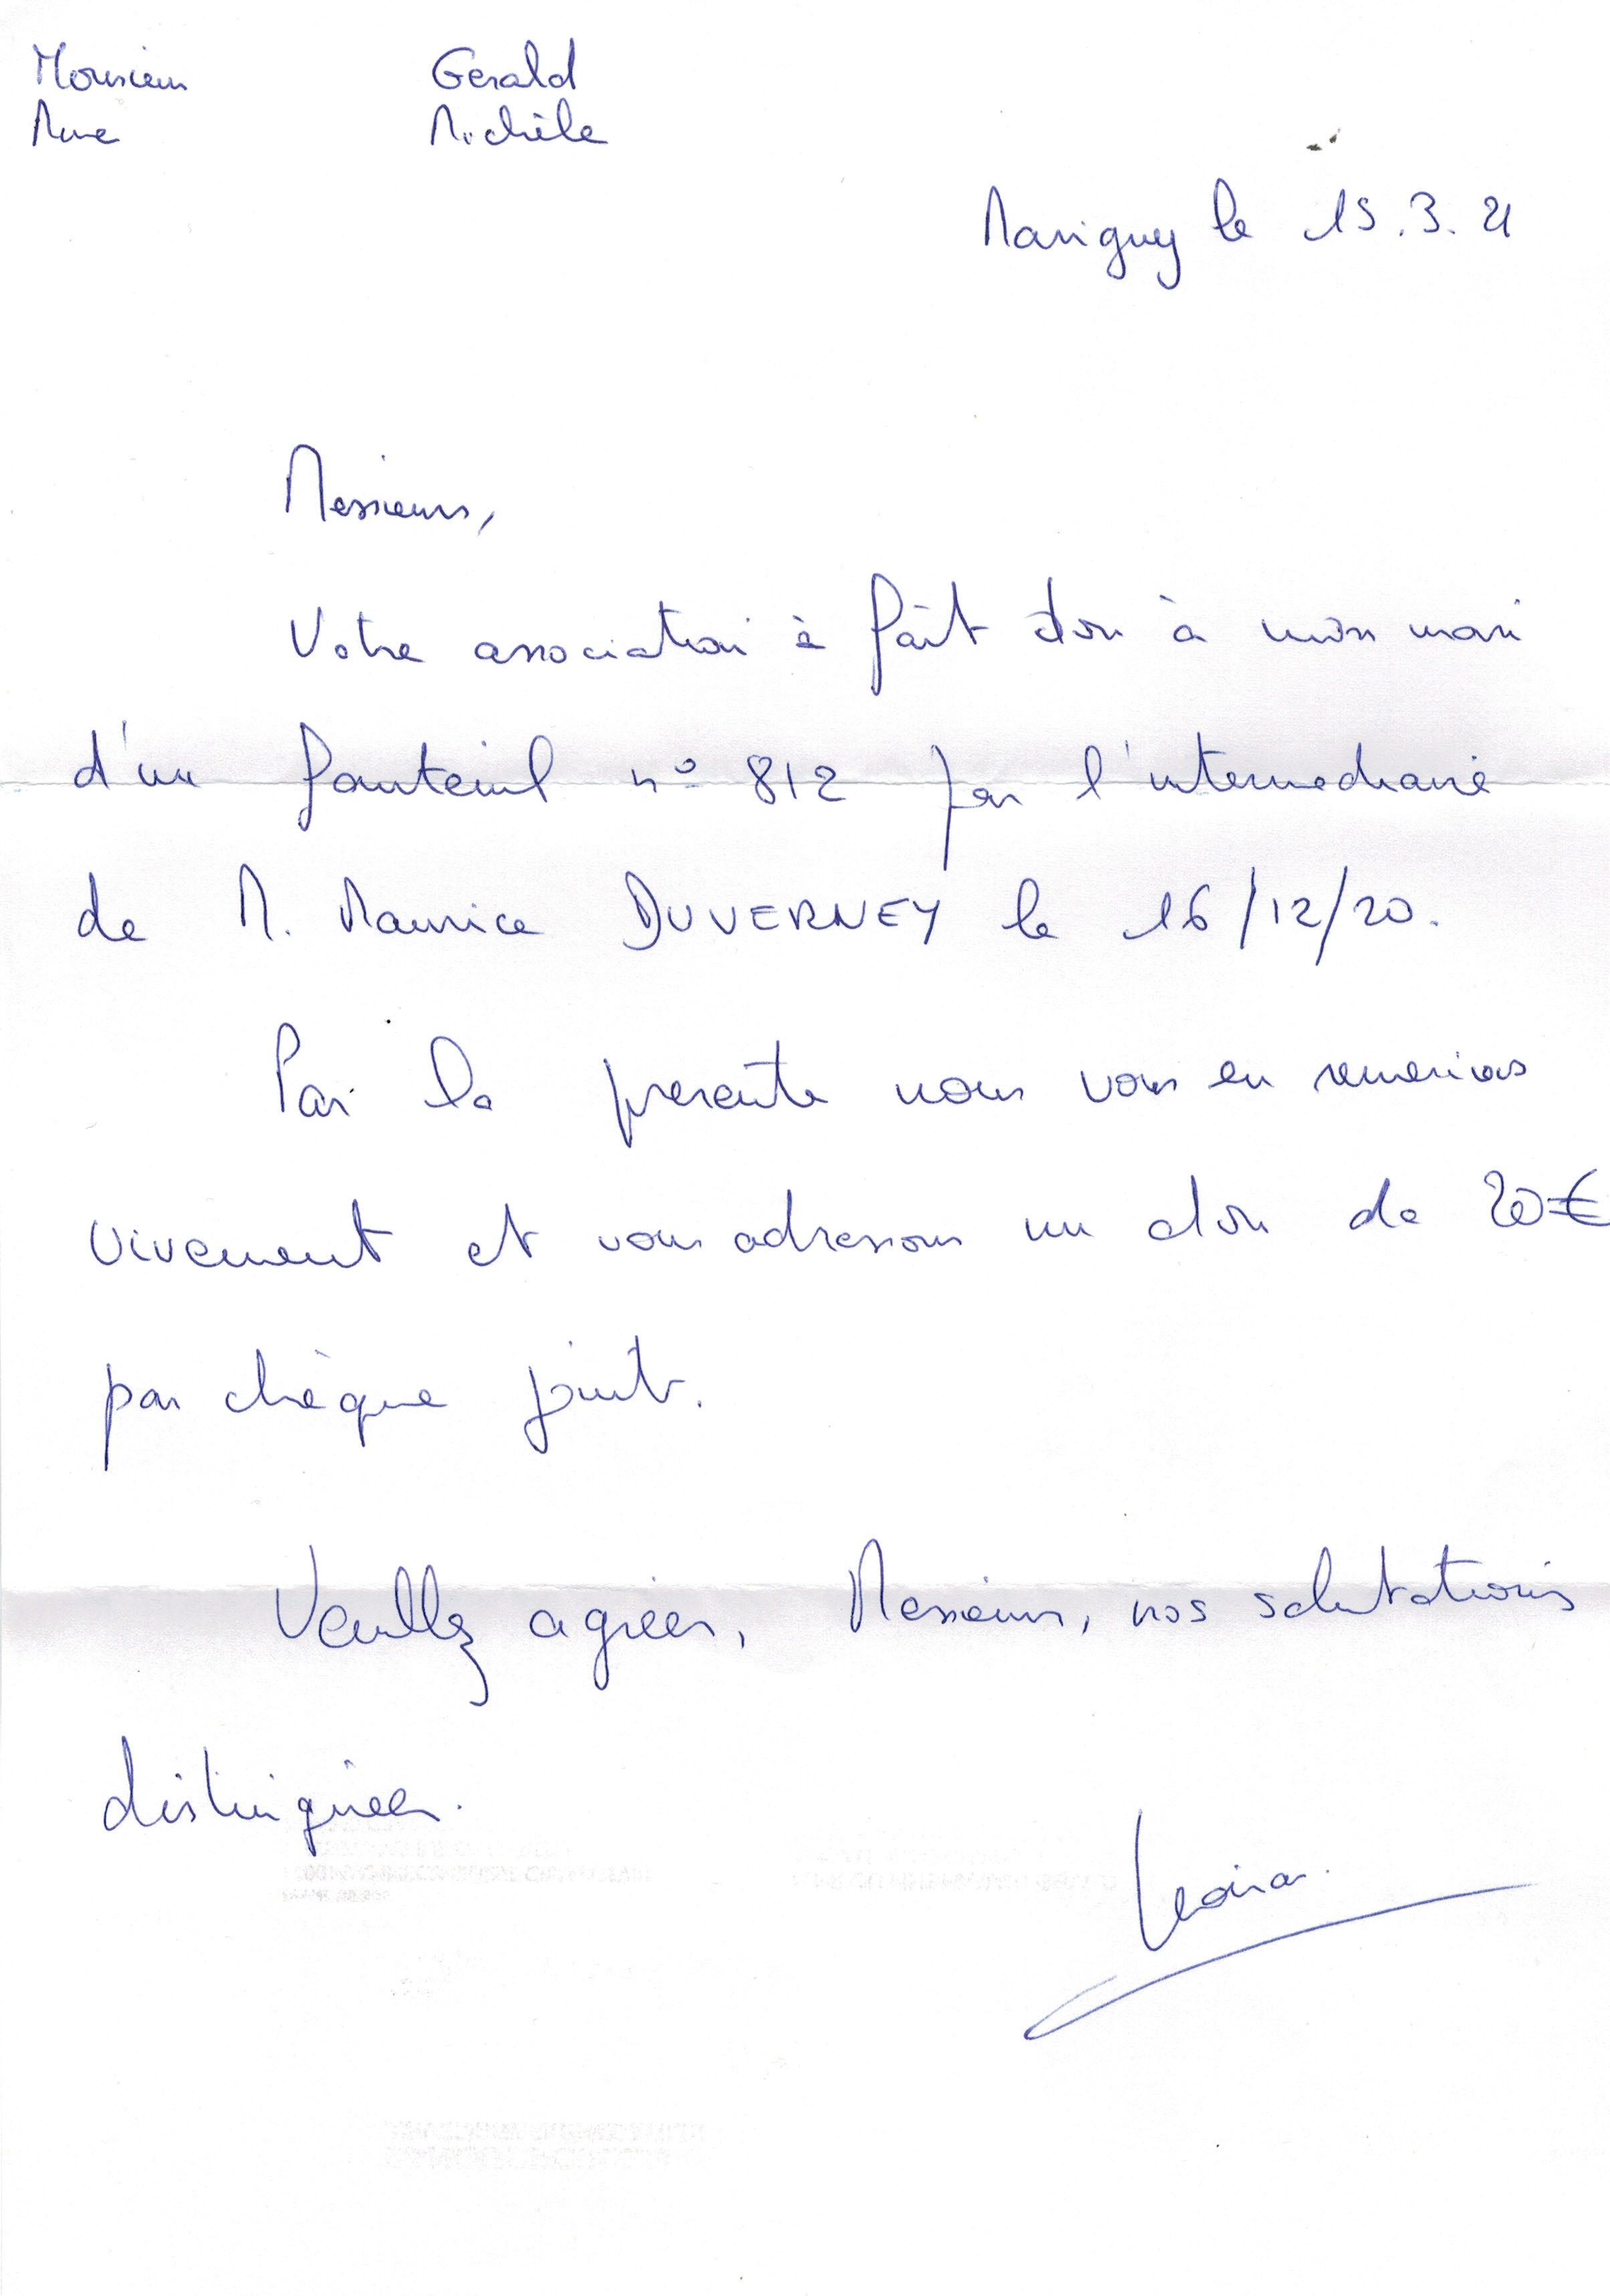 Monsieur Gerald
Mme Michèle
Marigny le 15.3.21
Messieurs,
Votre association à fait don à mon mari
d'un fauteuil n° 812 par l'intermediaire
de M. Maurice DUVERNEY le 16/12/20.
Par la presente nous vous en remercions
vivement et vous adressons un don de 20€
par chèque joint.
Veuillez agréer, Messieurs, nos salutations
distinguées.